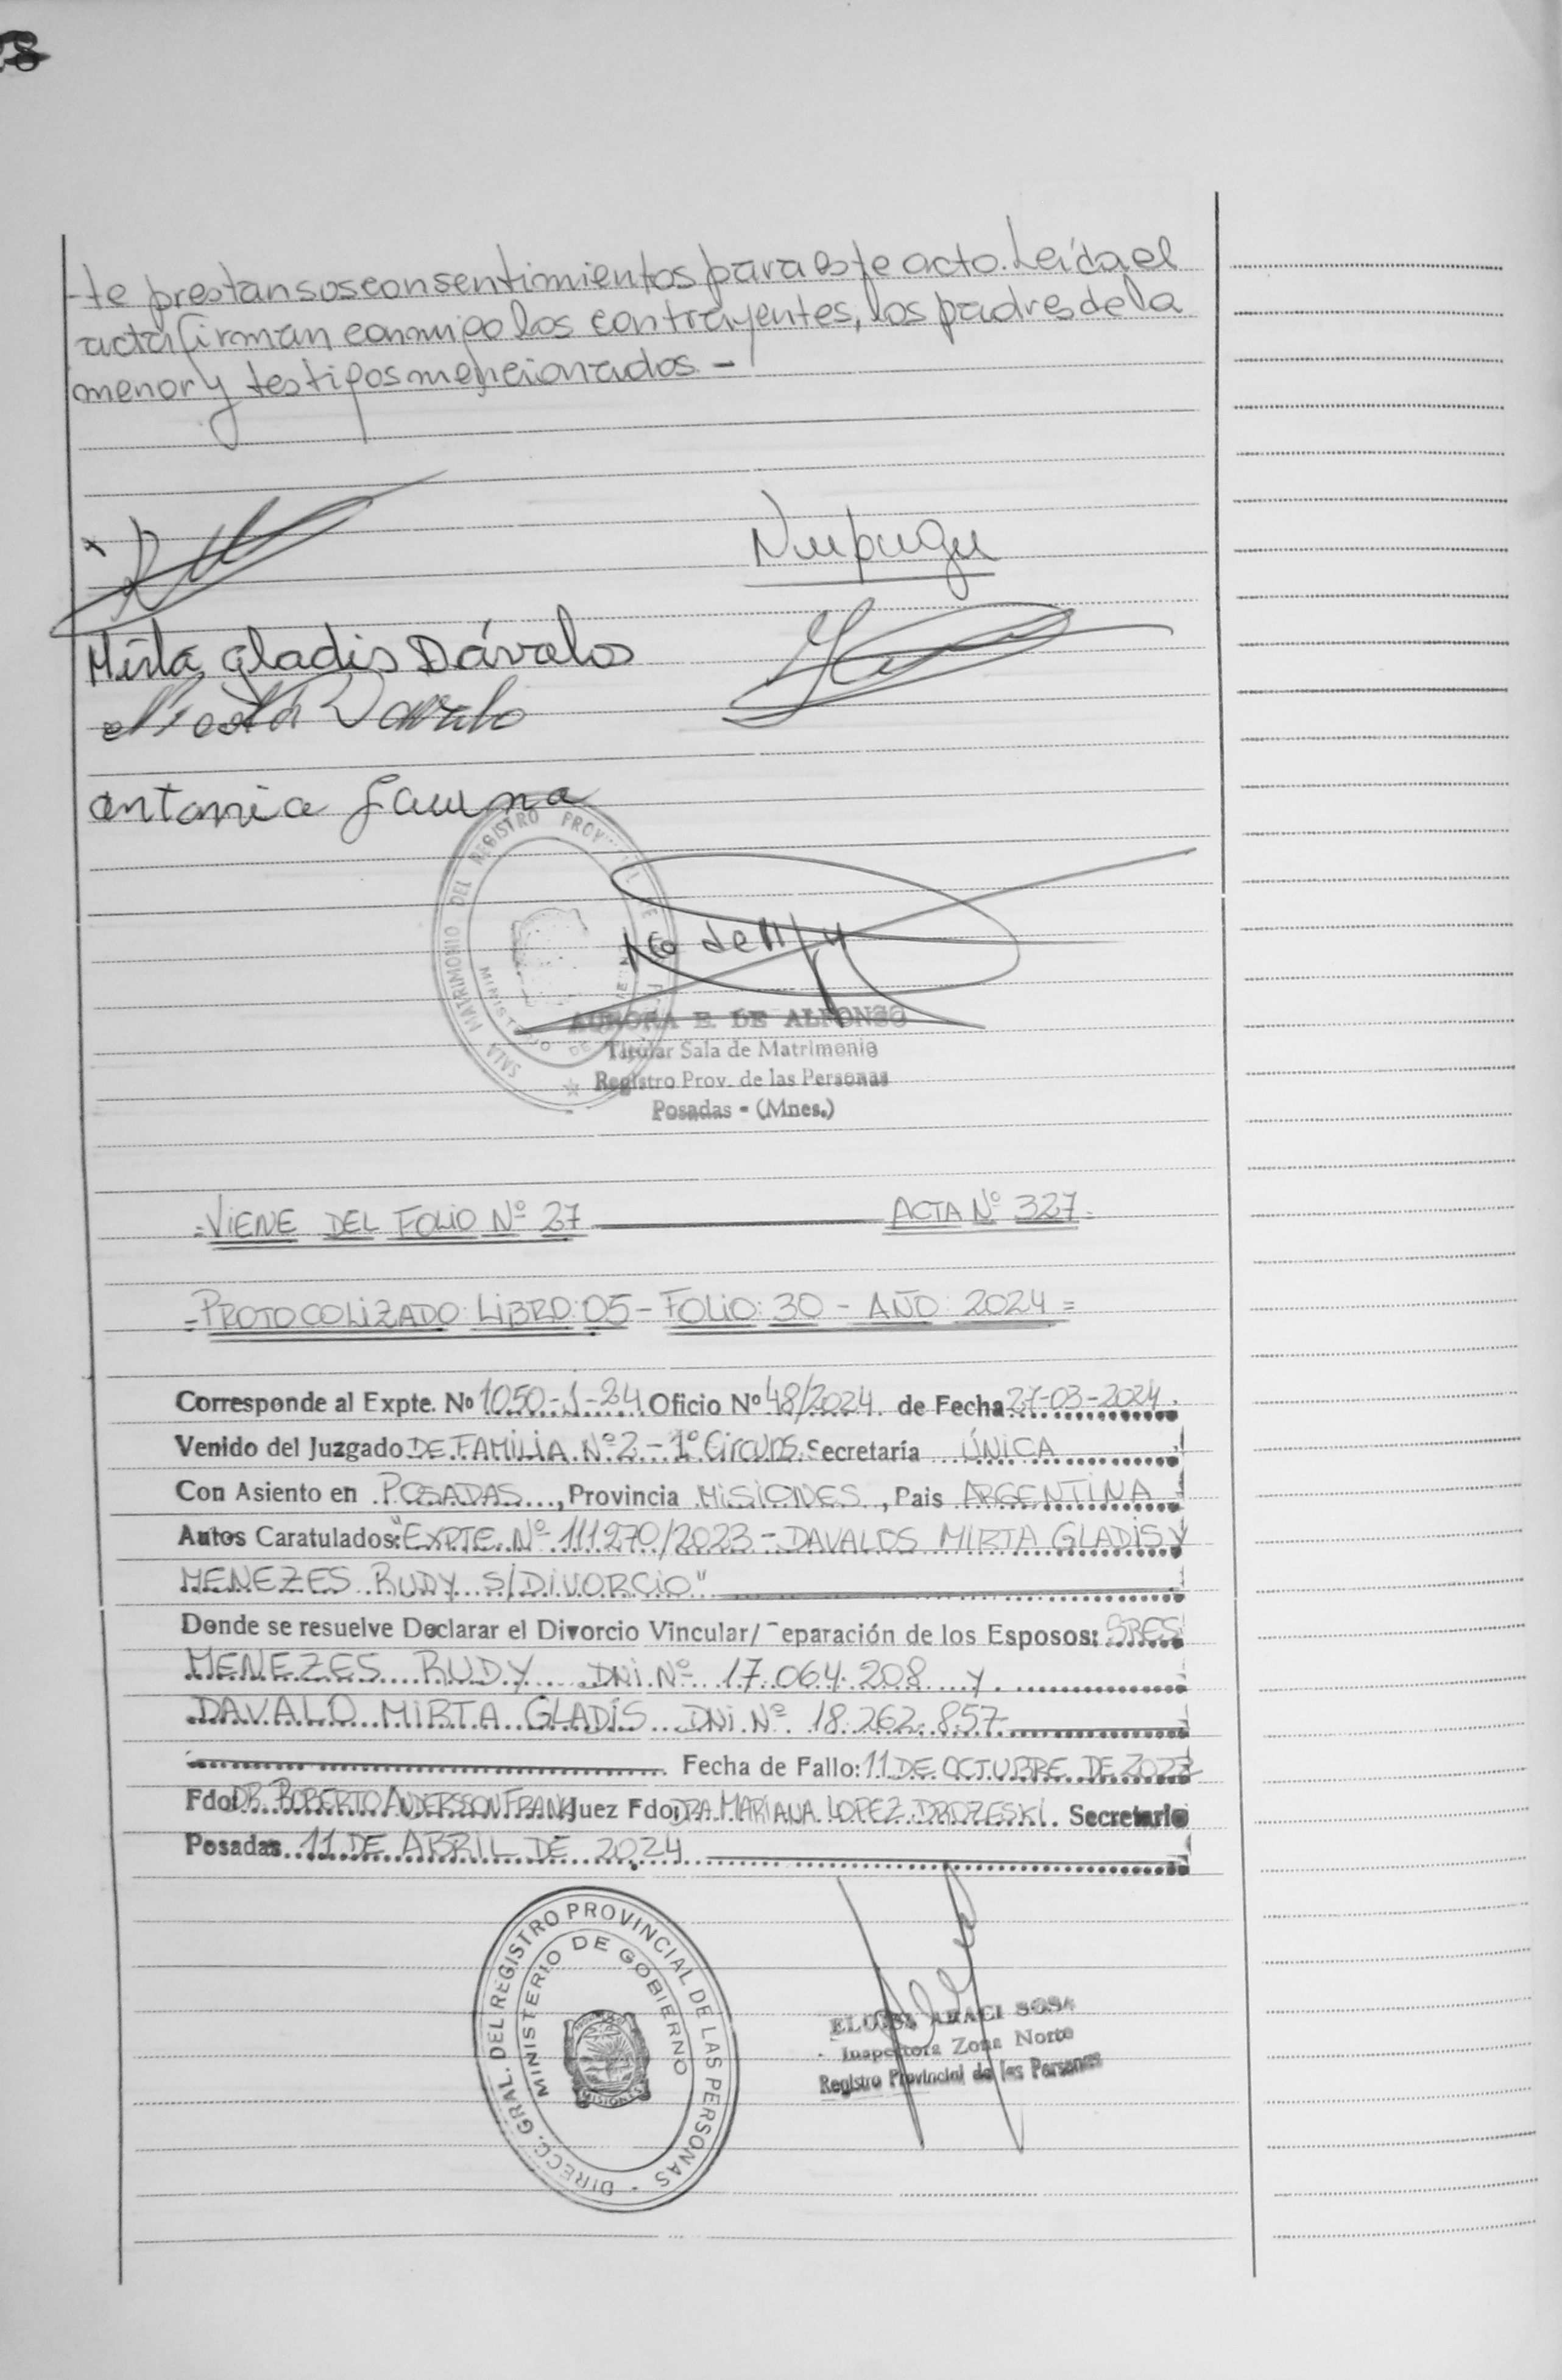 28
-te prestan sus consentimientos para este acto. Leída el
acta firman conmigo los contrayentes, los padres de la
menor y testigos mencionados. -
Mirta gladis Dávalos
Antonia
SALA MATRIMONIO DEL REGISTRO PROVINCIAL DE
MINISTERIO DE
AURORA E. DE ALFONSO
Titular Sala de Matrimonio
Registro Prov. de las Personas
Posadas - (Mnes.)
=VIENE DEL FOLIO Nº 27 ACTA Nº 327=
=PROTOCOLIZADO: LIBRO: 05 - FOLIO: 30 - AÑO: 2024=
Corresponde al Expte. Nº 1050-J-24 Oficio Nº 48/2024 de Fecha 27-03-2024
Venido del Juzgado DE FAMILIA Nº 2 - 1º Circuns. Secretaría ÚNICA
Con Asiento en POSADAS, Provincia MISIONES, Pais ARGENTINA
Autos Caratulados: "EXPTE. Nº 111270/2023 - DAVALOS MIRTA GLADIS Y
MENEZES RUDY S/DIVORCIO"
Donde se resuelve Declarar el Divorcio Vincular/ eparación de los Esposos: SRES
MENEZES RUDY DNI.Nº 17.064.208 y
DAVALO MIRTA GLADÍS DNI.Nº 18.262.857
Fecha de Fallo: 11 DE OCTUBRE DE
Fdo: DR. ROBERTO ANDERSSON FRANK Juez Fdo: DRA. MARIANA LOPEZ DROZESKI. Secretario
Posadas 11 DE ABRIL DE 2024
DIRECC. GRAL. DEL REGISTRO PROVINCIAL DE LAS PERSONAS
MINISTERIO DE GOBIERNO
MISIONES
ELOISA ARACI SOSA
Inspectora Zona Norte
Registro Provincial de las Personas